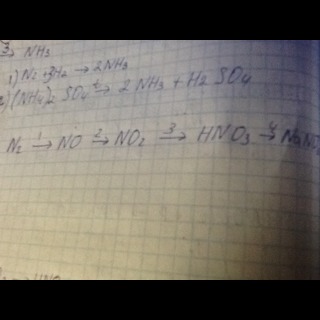 3→ NH3
1) N2 + 3H2 → 2NH3
2) (NH4)2 SO4 → 2 NH3 + H2 SO4
N2 1→ NO 2→ NO2 3→ HNO3 4→